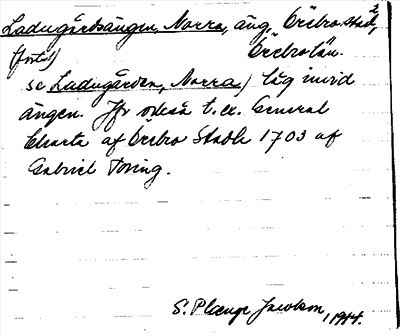 Ladugårdsängen, Norra, äng, Örebro stad,
(forts!) Örebro län.
se Ladugården, Norra) låg invid
ängen. Jfr också t.ex. General
Charta af Örebro Stadh 1703 af
Gabriel Toring.
S. Plænge Jacobson, 1944.